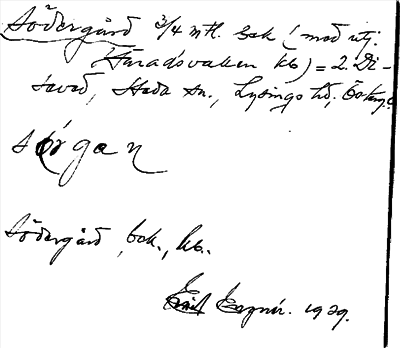 Södergård 3/4 mtl. bok (med utj.
Haradsvallen kb) = 2. Di-
savad, Heda sn., Lysings hd, Östergl.
sörgan
Södergård, bok., kb.
EmilEgnér. 1929.